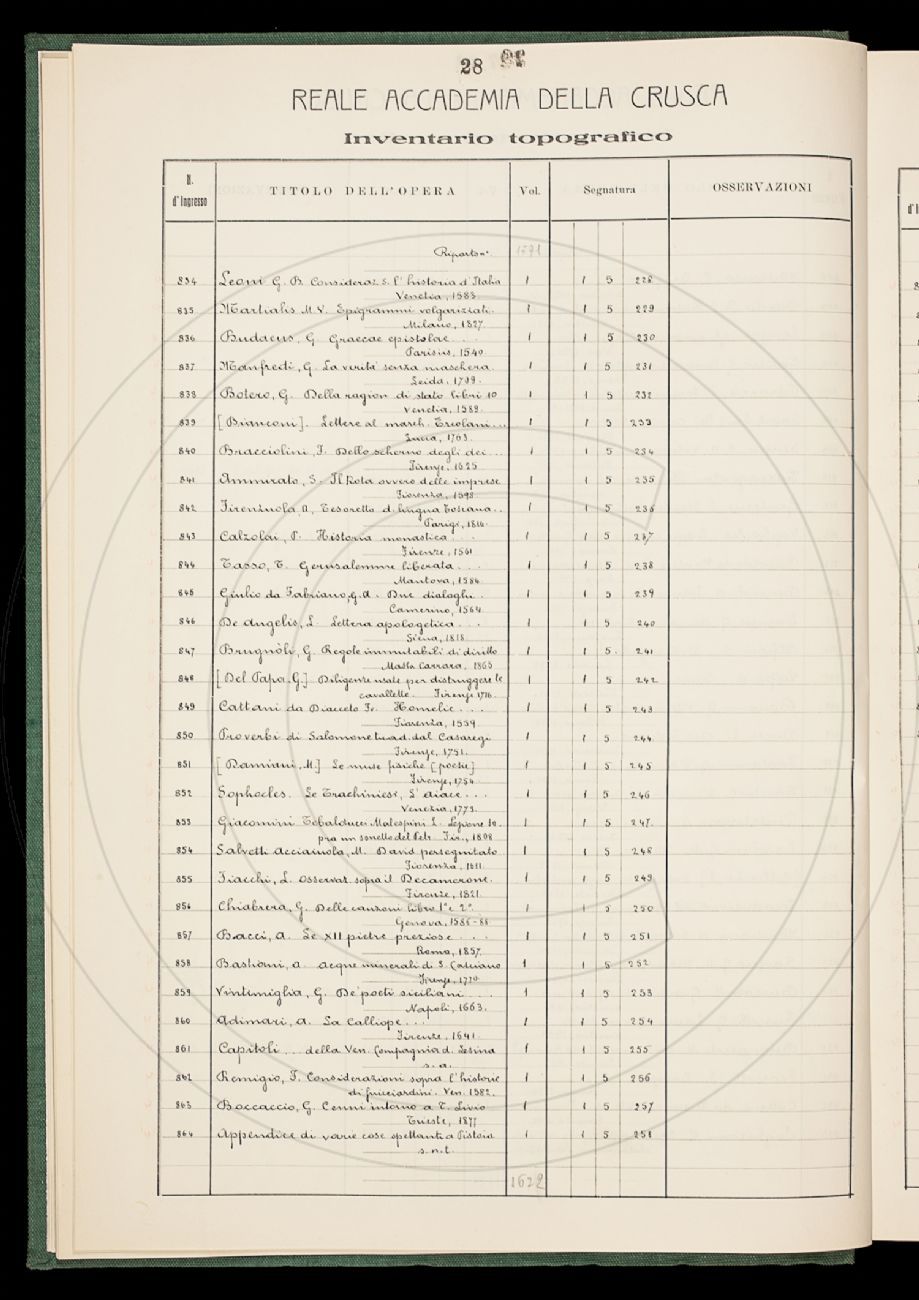 28
REALE ACCADEMIA DELLA CRUSCA
Inventario topografico
N. d'Ingresso TITOLO DELL'OPERA Vol. Segnatura OSSERVAZIONI
Riporto n°. 1591
834 Leoni G. B. Consideraz. s. l'historia d'Italia 1 1 5 228
Venetia, 1583.
835 Martialis M. V. Epigrammi volgarizzati. 1 1 5 229
Milano, 1827.
836 Budaeus, G. Graecae epistolae... 1 1 5 230
Parisiis, 1540.
837 Manfredi, G. La verità senza maschera. 1 1 5 231
Leida, 1709.
838 Botero, G. Della ragion di stato libri 10 1 1 5 232
Venetia, 1589.
839 [Bianconi]. Lettere al march. Ercolani... 1 1 5 233
Lucca, 1763.
840 Bracciolini, F. Dello scherno degli dei... 1 1 5 234
Firenze, 1625
841 Ammirato, S. Il Rota ovvero delle imprese 1 1 5 235
Fiorenza, 1598.
842 Firenzuola, A. Tesoretto d. lingua toscana.. 1 1 5 236
Parigi, 1816.
843 Calzolai, P. Historia monastica... 1 1 5 237
Firenze, 1561
844 Tasso, T. Gerusalemme liberata... 1 1 5 238
Mantova, 1584.
845 Giulio da Fabriano, G. A. Due dialoghi.. 1 1 5 239
Camerino, 1564.
846 De Angelis, L. Lettera apologetica... 1 1 5 240
Siena, 1818.
847 Brugnòli, G. Regole immutabili di diritto 1 1 5. 241
Massa Carrara, 1863
848 [Del Papa, G.] Diligenze usate per distruggere le 1 1 5 242
cavallette. Firenze 1716.
849 Cattani da Diacceto Fr. Homelie... 1 1 5 243
Fiorenza, 1559.
850 Proverbi di Salomone trad. dal Casaregi 1 1 5 244
Firenze, 1751.
851 [Damiani, M.] Le muse fisiche [poesie] 1 1 5 245
Firenze, 1754.
852 Sophocles. Le Trachiniesi, L'aiace... 1 1 5 246
Venezia, 1775.
853 Giacomini Tebalducci Malespini L. Lezione so- 1 1 5 247.
pra un sonetto del Petr. Fir., 1808
854 Salvetti Acciaiuola, M. David perseguitato 1 1 5 248
Fiorenza, 1611.
855 Fiacchi, L. Osservaz. sopra il Decamerone. 1 1 5 249
Firenze, 1821.
856 Chiabrera, G. Delle canzoni libro 1° e 2°. 1 1 5 250
Genova, 1586-88
857 Bacci, A. Le XII pietre preziose... 1 1 5 251
Roma, 1857.
858 Bastiani, A. Acque minerali di S. Casciano 1 1 5 252
Firenze, 1770.
859 Vintimiglia, G. De' poeti siciliani... 1 1 5 253
Napoli, 1663.
860 Adimari, A. La Calliope... 1 1 5 254
Firenze, 1641.
861 Capitoli... della Ven. Compagnia d. Lesina 1 1 5 255
s. a.
862 Remigio, F. Considerazioni sopra l'historie 1 1 5 256
di Guicciardini. Ven. 1582.
863 Boccaccio, G. Cenni intorno a T. Livio 1 1 5 257
Trieste, 1877
864 Appendice di varie cose spettanti a Pistoia 1 1 5 258
s. n. t.
1622